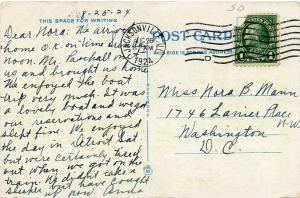 8-25-24
50
THIS SPACE FOR WRITING
POST CARD
JACKSONVILLE, ILL.
AUG 26
AM
1924
Dear Nora: We arrived
home O.K. on time Sun
noon. Mr. Paschall met
us and brought us home
We enjoyed the boat
trip very much. It was
a lovely boat and we got
our reservations and
slept fine. We enjoyed
the day in Detroit Sat.
but were certainly tired
out when we got on the
train. We didn't take a
sleeper but have caught
up now. Anna
Miss Nora B. Mann
1746 Lanier Place
N.W.
Washington
D.C.